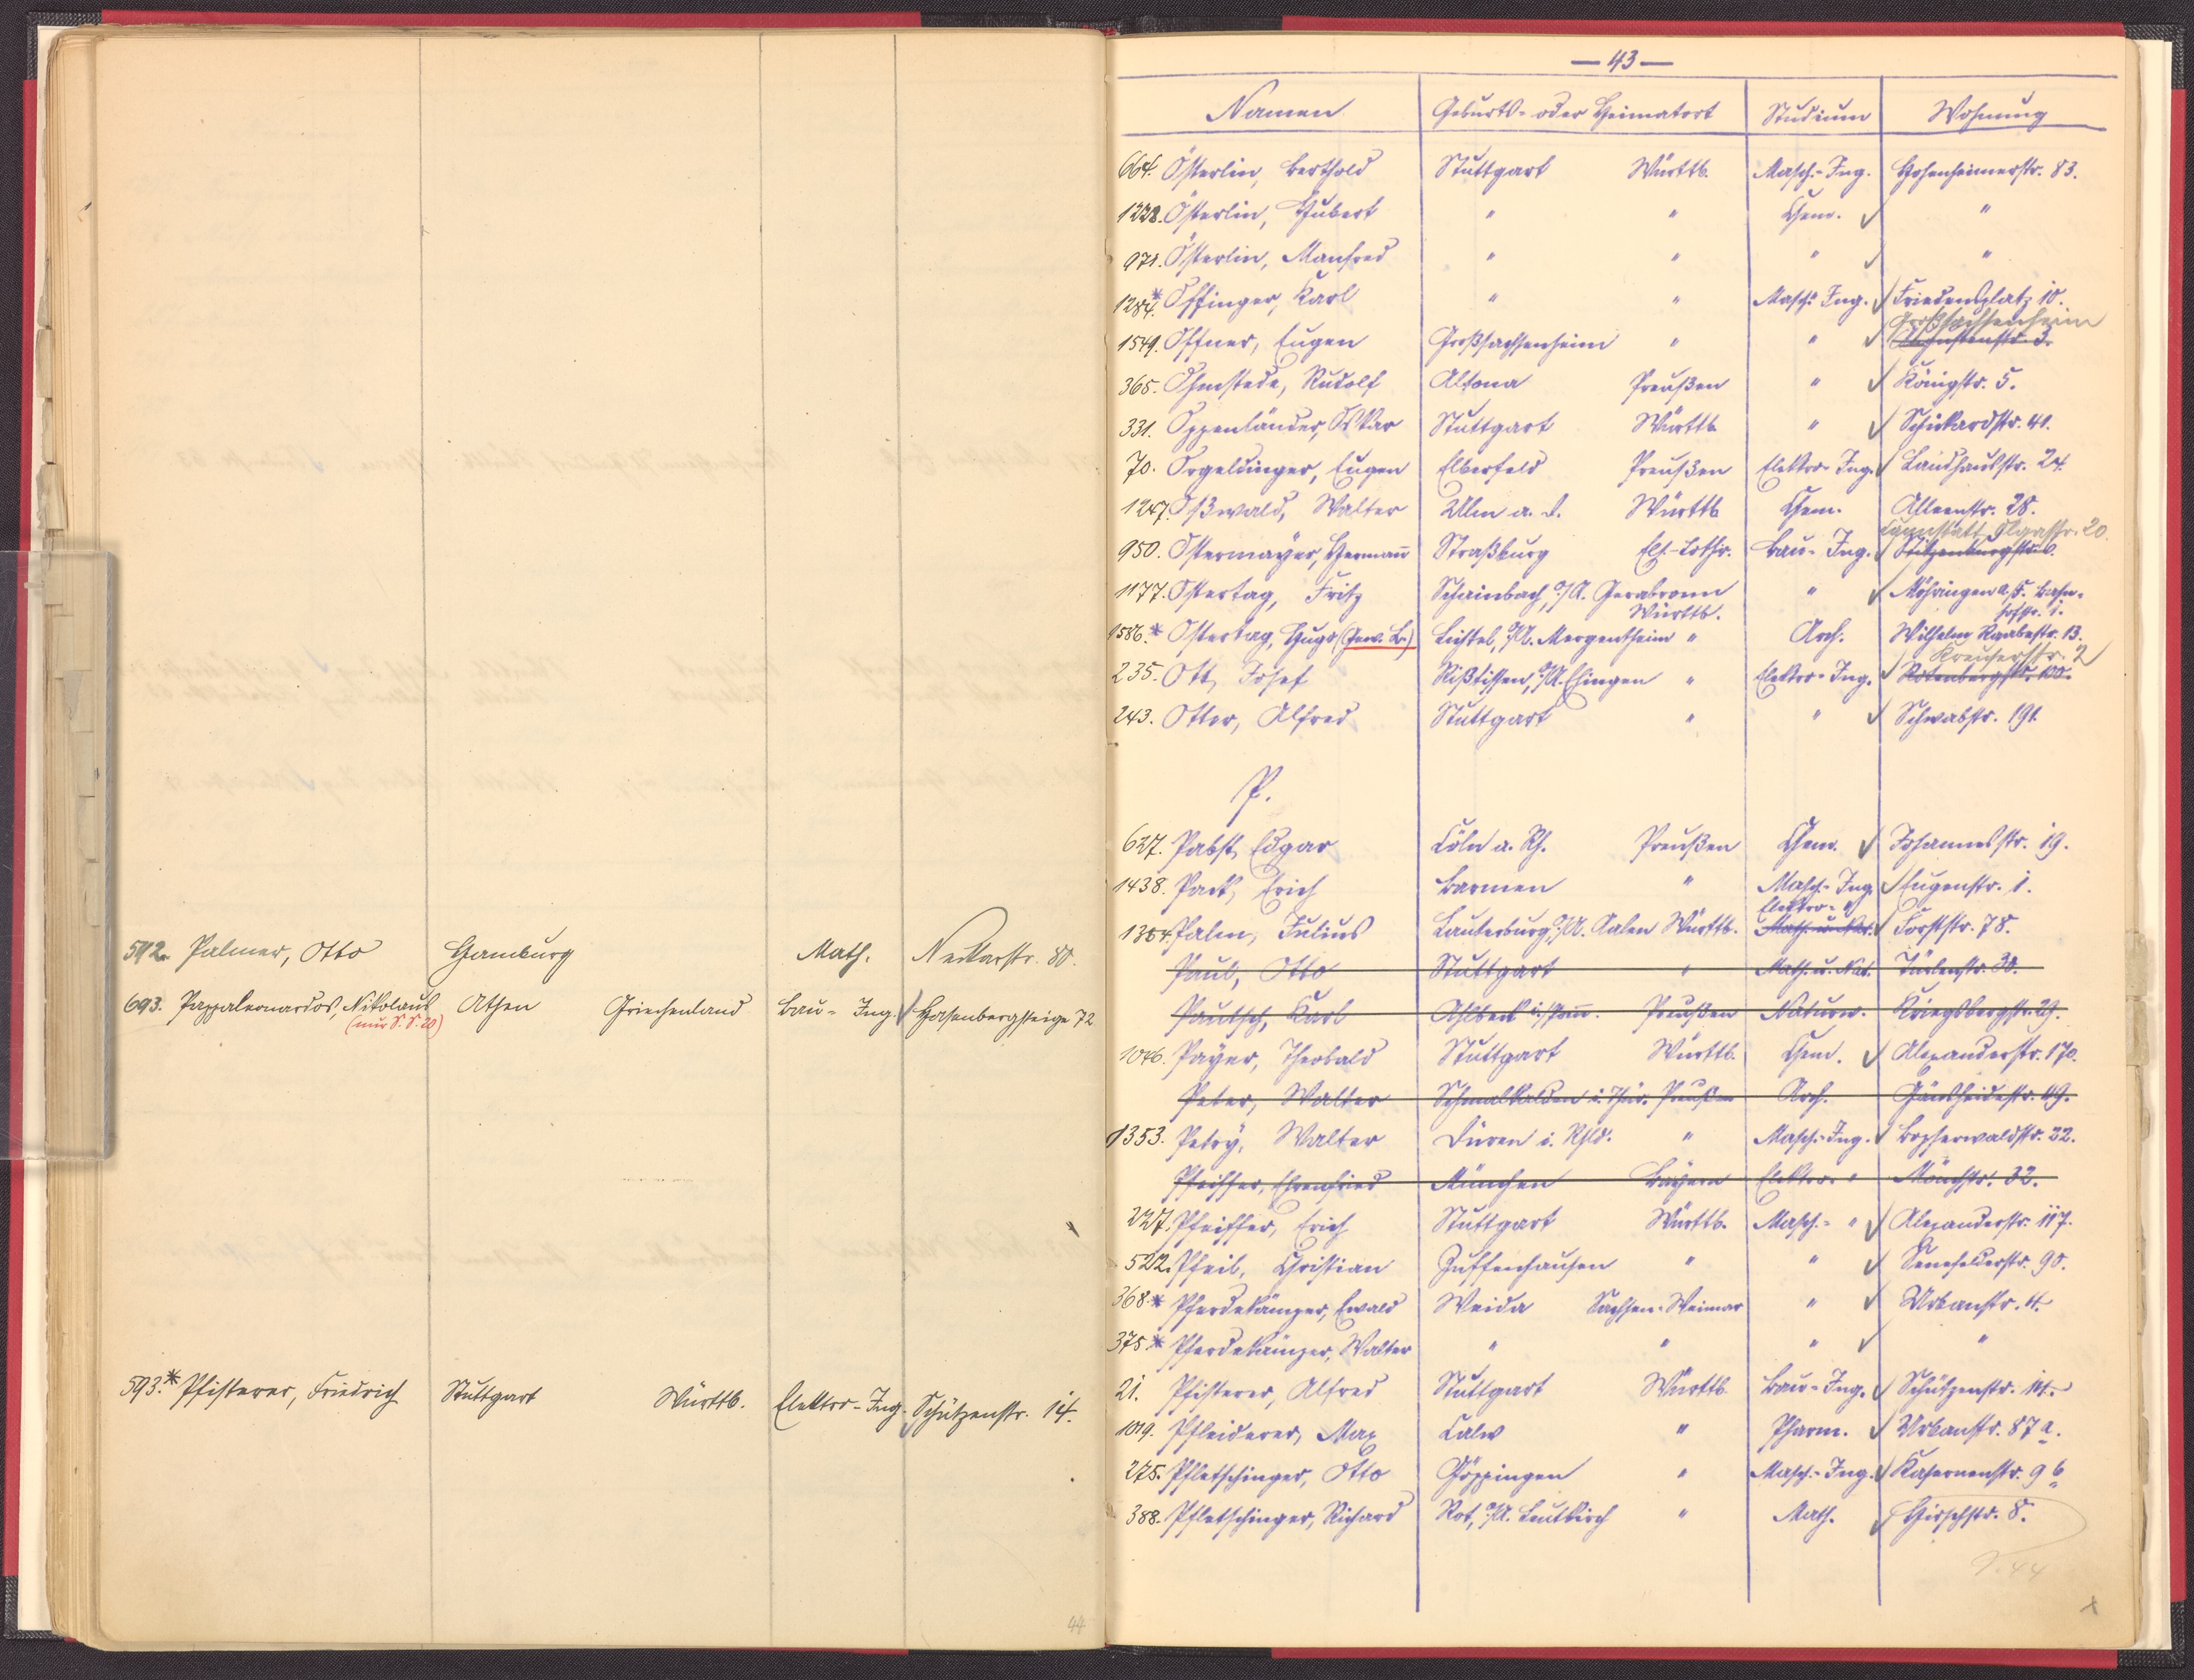 592. Palmer, Otto Hamburg Math. Neckarstr. 80.
693. Pappaleonardos, Nikolaus Athen Griechenland Bau-Ing. Hasenbergsteige 72
(nur S.S. 20)
593.* Pfisterer, Friedrich Stuttgart Württb. Elektro-Ing. Schützenstr. 14.
44
— 43 —
Namen Geburts- oder Heimatort Studium Wohnung
664. Österlin, Berthold Stuttgart Württb. Masch.-Ing. Hohenheimerstr. 83.
1228. Österlin, Hubert " " Chem. "
971. Österlin, Manfred " " " "
1284.* Öffinger, Karl " " Masch.-Ing. Friedensplatz 10.
Großsachsenheim
1549. Offner, Eugen Großsachsenheim " " Augustenstr. 3.
365. Ohmstede, Rudolf Altona Preußen " Königstr. 5.
331. Oppenländer, Oskar Stuttgart Württb. " Schickardstr. 41.
70. Orgeldinger, Eugen Elberfeld Preußen Elektro-Ing. Landhausstr. 24.
1247. Oßwald, Walter Ulm a. D. Württb. Chem. Alleenstr. 28.
Cannstatt, Olgastr. 20.
950. Ostermayer, Hermann Straßburg Els.-Lothr. Bau-Ing.
1177. Ostertag, Fritz Schainbach, O/A. Gerabronn " Möhringen a/F. Bahn-
Württb. hofstr. 1.
1586.* Ostertag, Hugo (Gew. L.) Lichtel, O/A. Mergentheim " Arch. Wilhelm Raabestr. 13.
Kreuserstr. 2
235. Ott, Josef Rißtissen, O/A. Ehingen " Elektro-Ing. Rotenbergstr. 100.
243. Otter, Alfred Stuttgart " " Schwabstr. 191.
P.
627. Pabst, Edgar Cöln a. Rh. Preußen Chem. Johannesstr. 19.
1438. Pack, Erich Barmen " Masch.-Ing. Eugenstr. 1.
Elektro- "
1304. Palm, Julius Lauterburg, O/A. Aalen Württb. Math. u. Nat. Forststr. 78.
Paul, Otto Stuttgart " Math. u. Nat. Türlenstr. 30.
Pautsch, Karl Ahlbeck i/Pom. Preußen Naturw. Kriegsbergstr. 29.
1046. Payer, Theobald Stuttgart Württb. Chem. Alexanderstr. 170.
Peter, Walter Schmalkalden i. Thür. Preußen Arch. Gänsheidestr. 49.
1353. Petry, Walter Düren i. Rhld. " Masch.-Ing. Bopserwaldstr. 32.
Pfeiffer, Ehrenfried München Bayern Elektro- " Mönchstr. 32.
227. Pfeiffer, Erich Stuttgart Württb. Masch.- " Alexanderstr. 117.
522. Pfeil, Christian Zuffenhausen " " Senefelderstr. 90.
368.* Pferdekämper, Ewald Weida Sachsen-Weimar " Urbanstr. 4.
375.* Pferdekämper, Walter " " " "
21. Pfisterer, Alfred Stuttgart Württb. Bau-Ing. Schützenstr. 14.
1019. Pfleiderer, Max Calw " Pharm. Urbanstr. 87a.
275. Pfletschinger, Otto Göppingen " Masch.-Ing. Kasernenstr. 9b
388. Pfletschinger, Richard Rot, O/A. Leutkirch " Math. Hirschstr. 8.
S. 44